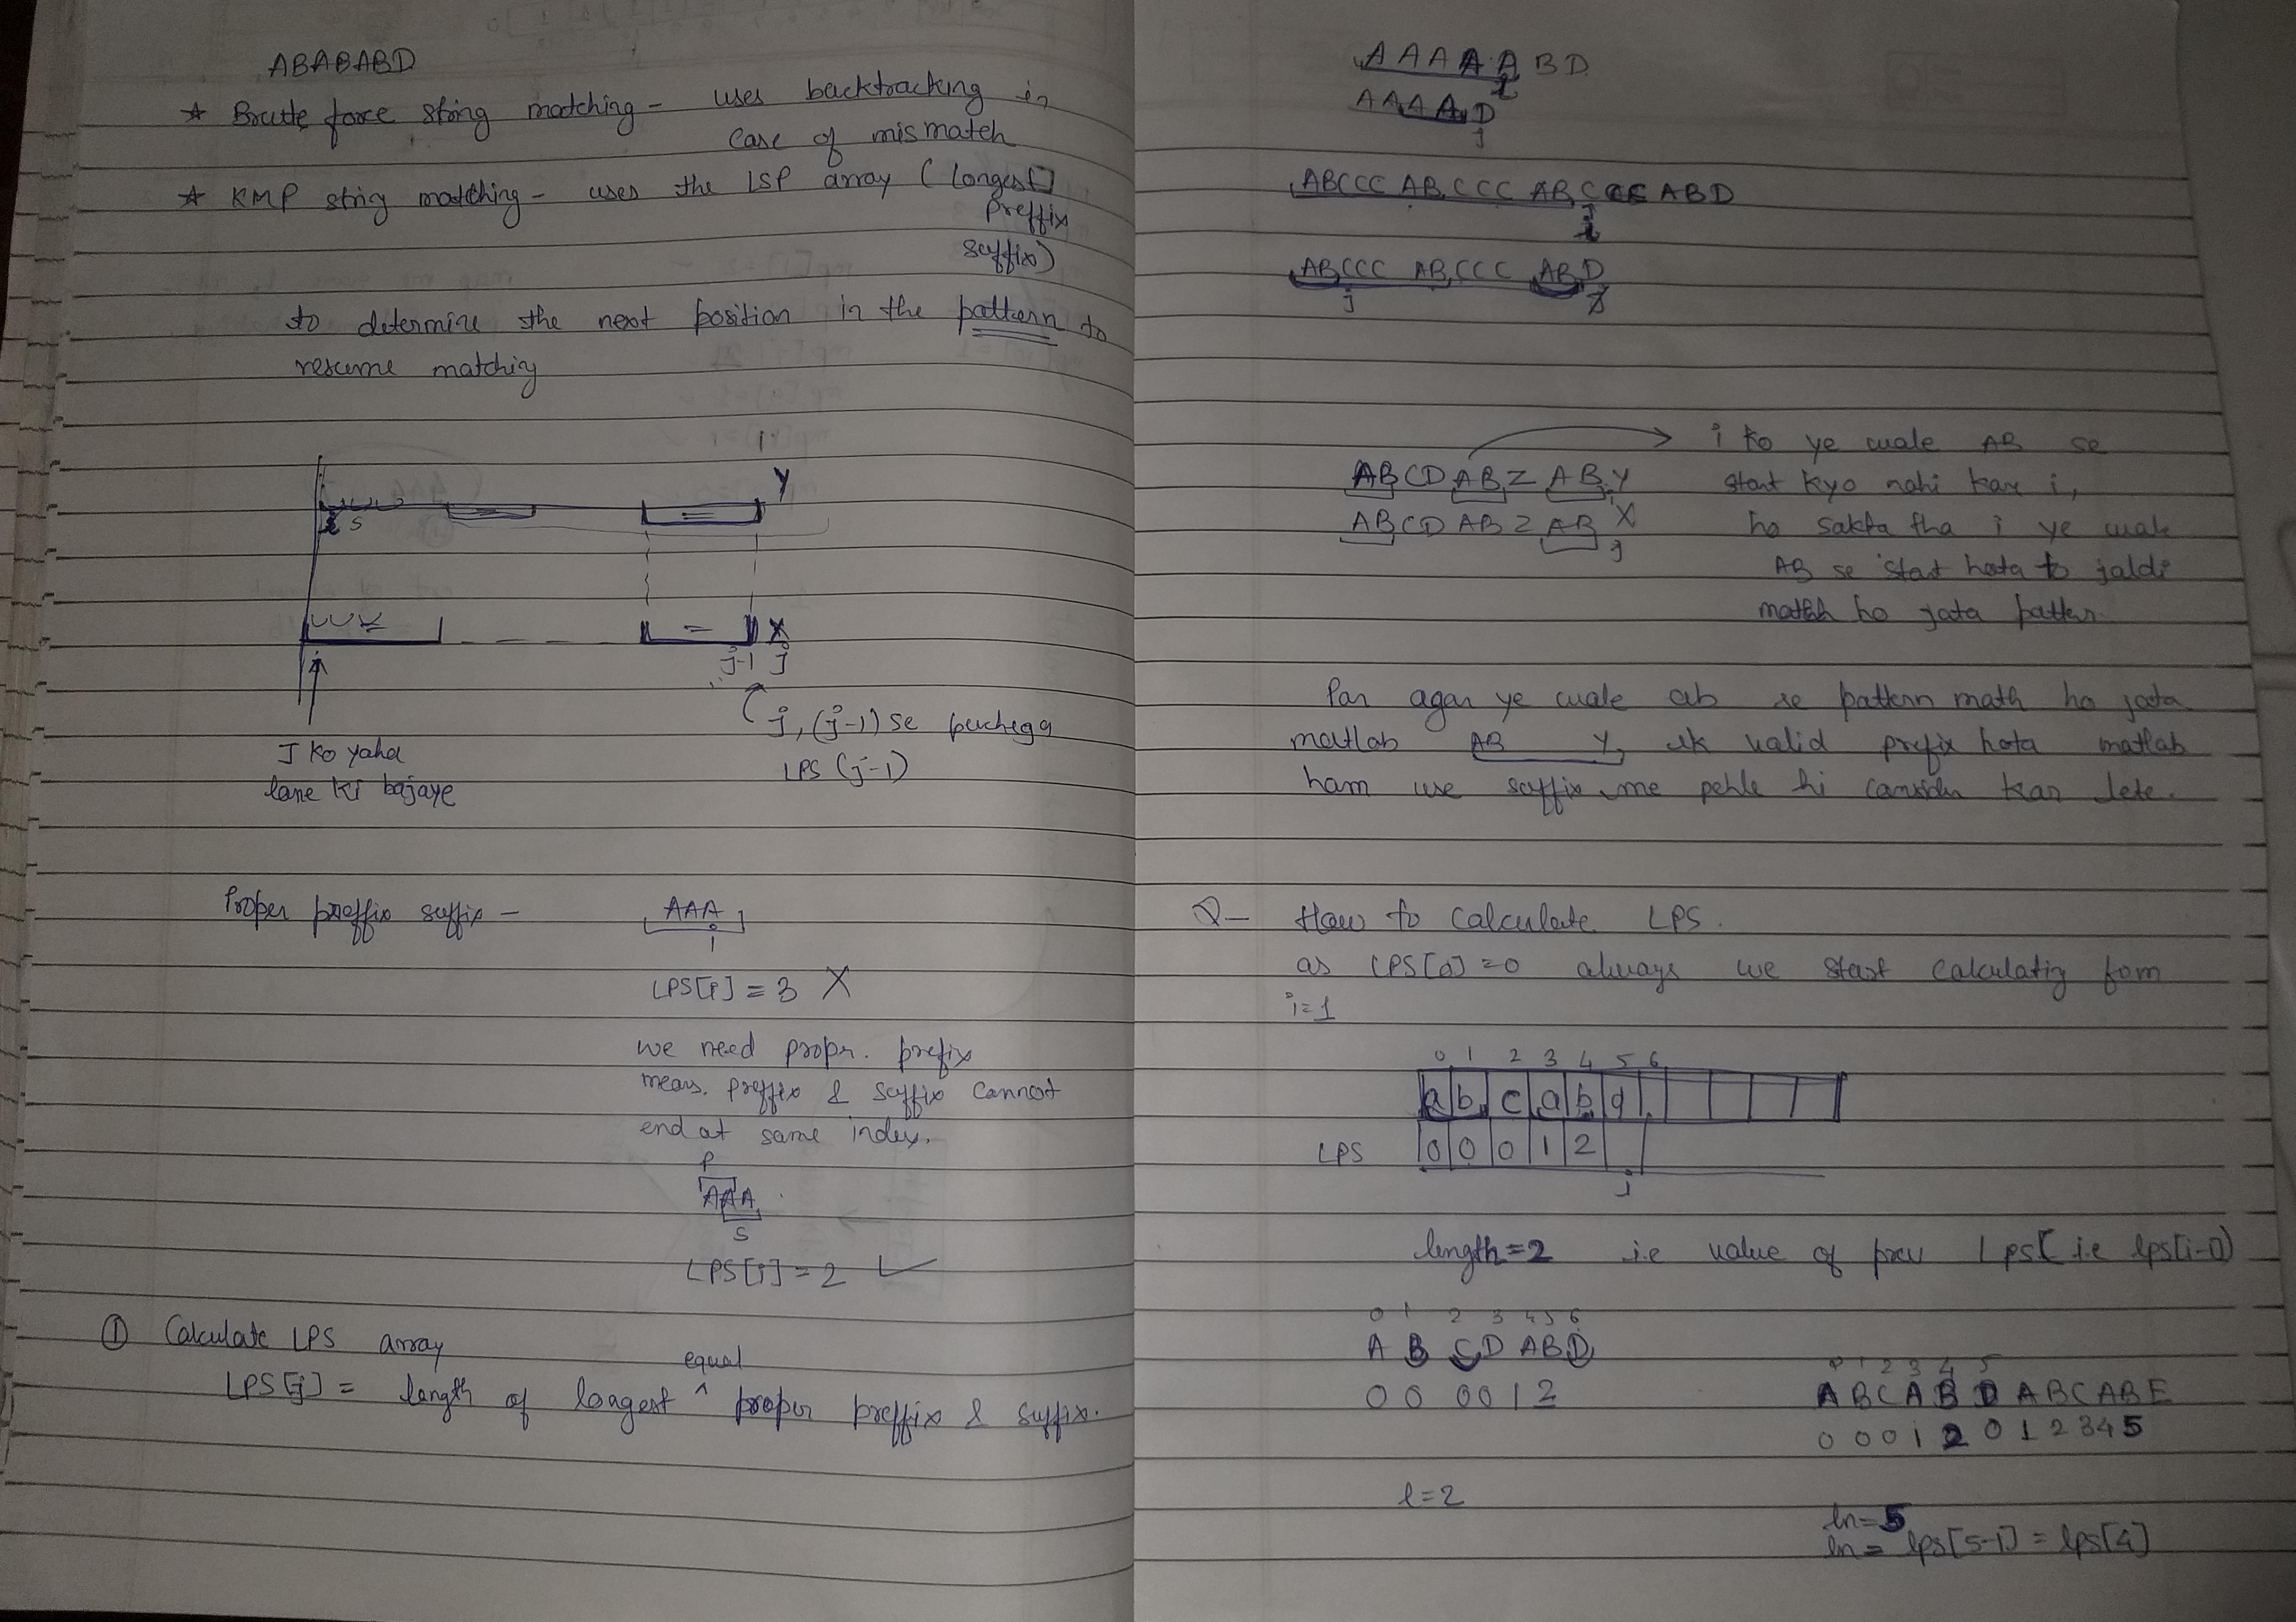 ABABABD
* Brute force string matching - uses backtracking in
case of mismatch
* KMP string matching - uses the LSP array (longest
preffix
suffix)
to determine the next position in the pattern to
resume matching
i
Y
S
X
j-1 j
j, (j-1) se puchega
LPS (j-1)
J ko yaha
lane ki bajaye
Proper preffix suffix - AAA
i
LPS[i] = 3 X
we need propr. prefix
means. preffix & suffix cannot
end at same index.
P
AAA
S
LPS[i] = 2 ✓
① Calculate LPS array
equal
LPS[j] = length of longest ^ proper preffix & suffix.
AAAAABD
i
AAAAD
j
ABCCC ABCCC ABCCC ABD
i
ABCCC ABCCC ABD
j
ABCDABZABY
ABCDABZABX
j
i ko ye wale AB se
start kyo nahi kar i,
ho sakta tha i ye wale
AB se start hota to jaldi
match ho jata patter
Par agar ye wale ab se pattern math ho jata
matlab AB Y, ek valid prefix hota matlab
ham use suffix me pehle hi consider kar lete.
Q- How to calculate LPS.
as LPS[0]=0 always we start calculatig fom
i=1
0 1 2 3 4 5 6
a b c a b d
LPS 0 0 0 1 2
i
length=2 i.e value of prev Lps[ i.e lps[i-1)
0 1 2 3 4 5 6
A B C D A B D
0 0 0 0 1 2
l=2
0 1 2 3 4 5
A B C A B D A B C A B E
0 0 0 1 2 0 1 2 3 4 5
ln=5
ln= lps[5-1] = lps[4]